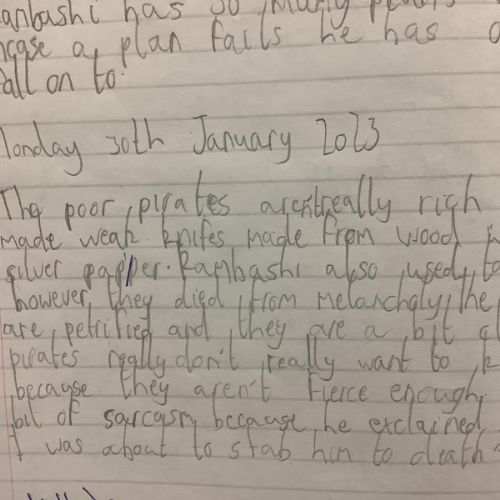 anbashi has so many plans
ncase a plan fails he has
all on to.
Monday 30th January 2023
The poor pirates arentreally rich
made weak knifes made from wood
silver papper. Rambashi also used to
however, they died from melancholy, the
are petrified and they are a bit
pirates really don't really want to
because they aren't fierce enough,
bit of sarcasm because he exclaimed
I was about to stab him to death